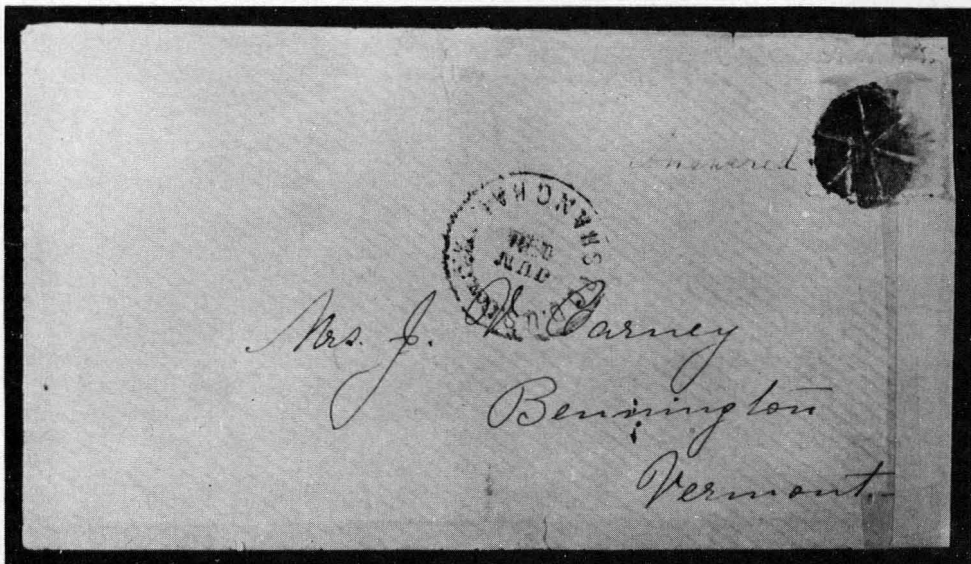 answered
SHANGHAI
JUN
Mrs. J. W. Carney
Bennington
Vermont.